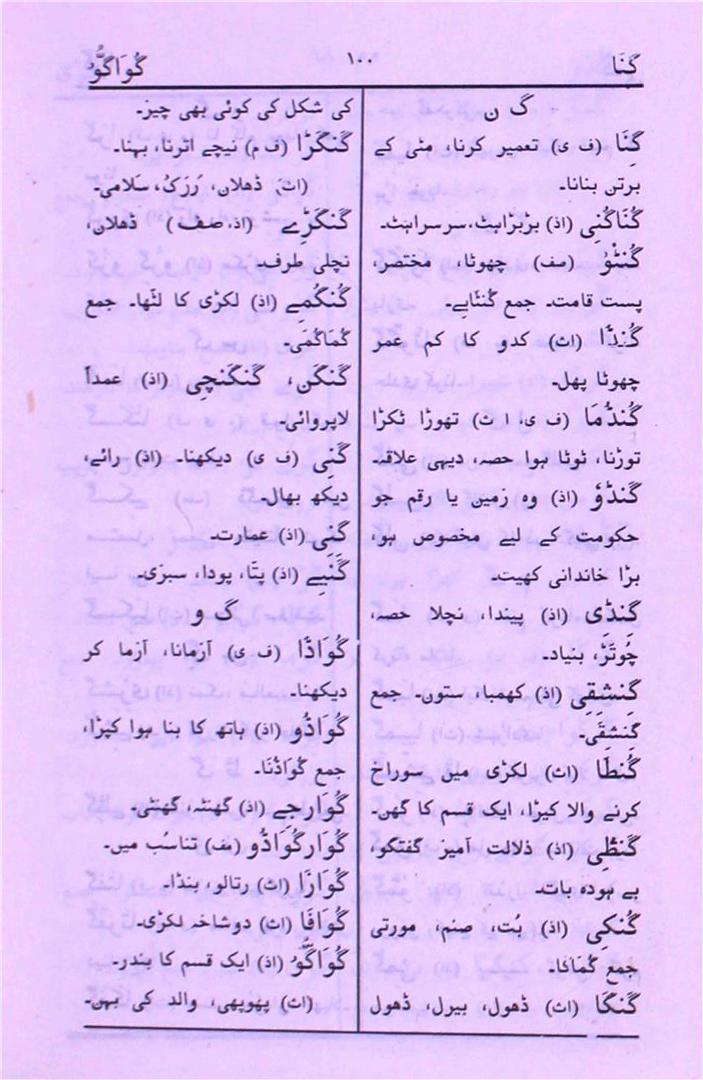 گِنَا
۱۰۰
گُوَاگُّو
گ ن
گِنَا (ف ی) تعمیر کرنا، مٹی کے
برتن بنانا۔
گُنَاگُنِی (اذ) بڑبڑاہٹ، سرسراہٹ۔
گُنْٹُو (صف) چھوٹا، مختصر،
پست قامت۔ جمع گُنْٹَاپے۔
گُنْڈَا (اث) کدو کا کم عمر
چھوٹا پھل۔
گُنْڈُمَا (ف ی، ا ث) تھوڑا ٹکڑا
توڑنا، ٹوٹا ہوا حصہ، دیہی علاقہ۔
گَنْڈَوْ (اذ) وہ زمین یا رقم جو
حکومت کے لیے مخصوص ہو،
بڑا خاندانی کھیت۔
گِنْڈِی (اذ) پیندا، نچلا حصہ،
چوتڑ، بنیاد۔
گِنْشِقِی (اذ) کھمبا، ستون۔ جمع
گِنْشَقَی۔
گُنْطَا (اث) لکڑی میں سوراخ
کرنے والا کیڑا، ایک قسم کا گھن۔
گَنْظِی (اذ) ذلالت آمیز گفتگو،
بے ہودہ بات۔
گُنْکِی (اذ) بُت، صنم، مورتی
جمع گُمَاکَا۔
گَنْگَا (اث) ڈھول، بیرل، ڈھول
کی شکل کی کوئی بھی چیز۔
گَنْگَرَا (ف م) نیچے اترنا، بہنا۔
(اث) ڈھلان، رَزَک، سَلامی۔
گَنْگَرِے (اذ، صف) ڈھلان،
نچلی طرف۔
گُنْگُمِے (اذ) لکڑی کا لٹھا۔ جمع
گُمَاگُمَی۔
گَنْگَن، گَنْگَنْچِی (اذ) عمداً
لاپروائی۔
گَنِی (ف ی) دیکھنا۔ (اذ) رائے،
دیکھ بھال۔
گِنِی (اذ) عمارت۔
گَنْیے (اذ) پتّا، پودا، سبزی۔
گ و
گُوَاڈَا (ف ی) آزمانا، آزما کر
دیکھنا۔
گُوَاڈُو (اذ) ہاتھ کا بنا ہوا کپڑا،
جمع گُوَاڈُنَا۔
گُوَارجِے (اذ) گھنٹہ، گھنٹی۔
گُوَارگُوَاڈُو (مف) تناسُب میں۔
گُوَازَا (اث) رتالو، بنڈا۔
گُوَافَا (اث) دوشاخہ لکڑی۔
گُوَاگُّو (اذ) ایک قسم کا بندر۔
(اث) پھوپھی، والد کی بہن۔